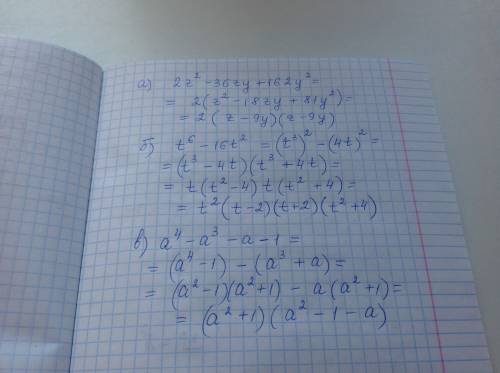 а) 2z² - 36zy + 162y² =
= 2(z² - 18zy + 81y²) =
= 2(z - 9y)(z - 9y)
б) t⁶ - 16t² = (t³)² - (4t)² =
= (t³ - 4t)(t³ + 4t) =
= t(t² - 4) t(t² + 4) =
= t²(t - 2)(t + 2)(t² + 4)
в) a⁴ - a³ - a - 1 =
= (a⁴ - 1) - (a³ + a) =
= (a² - 1)(a² + 1) - a(a² + 1) =
= (a² + 1)(a² - 1 - a)